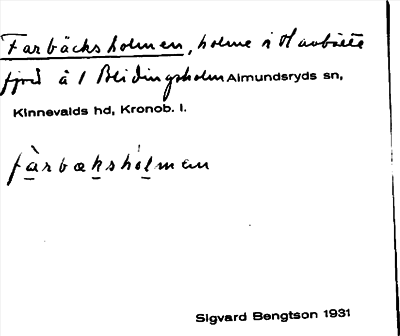 Farbäcksholmen, holme i Havbålte
fjord å 1 Blidingsholm Almundsryds sn,
Kinnevalds hd, Kronob. l.
fàrbaksho̍lmen
Sigvard Bengtson 1931